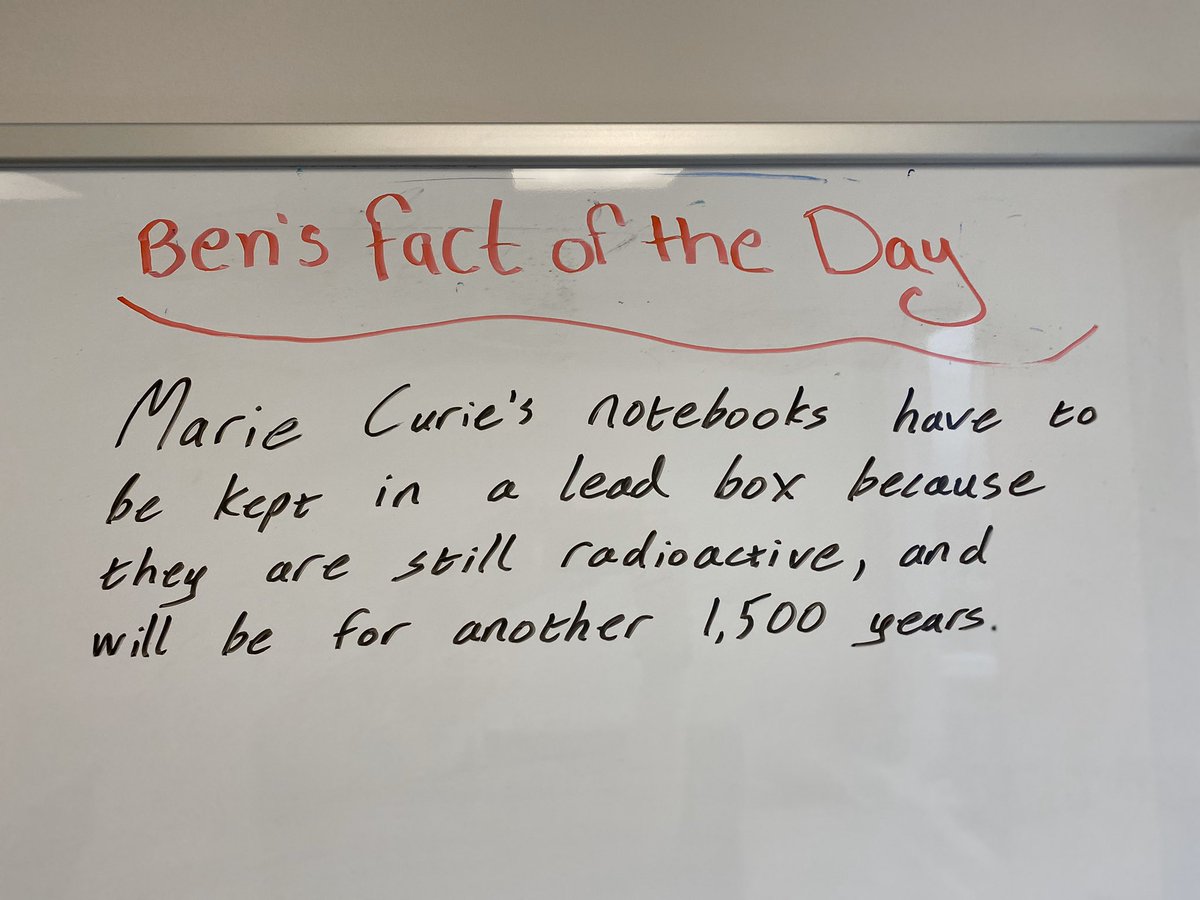 Ben's fact of the Day
Marie Curie's notebooks have to
be kept in a lead box because
they are still radioactive, and
will be for another 1,500 years.